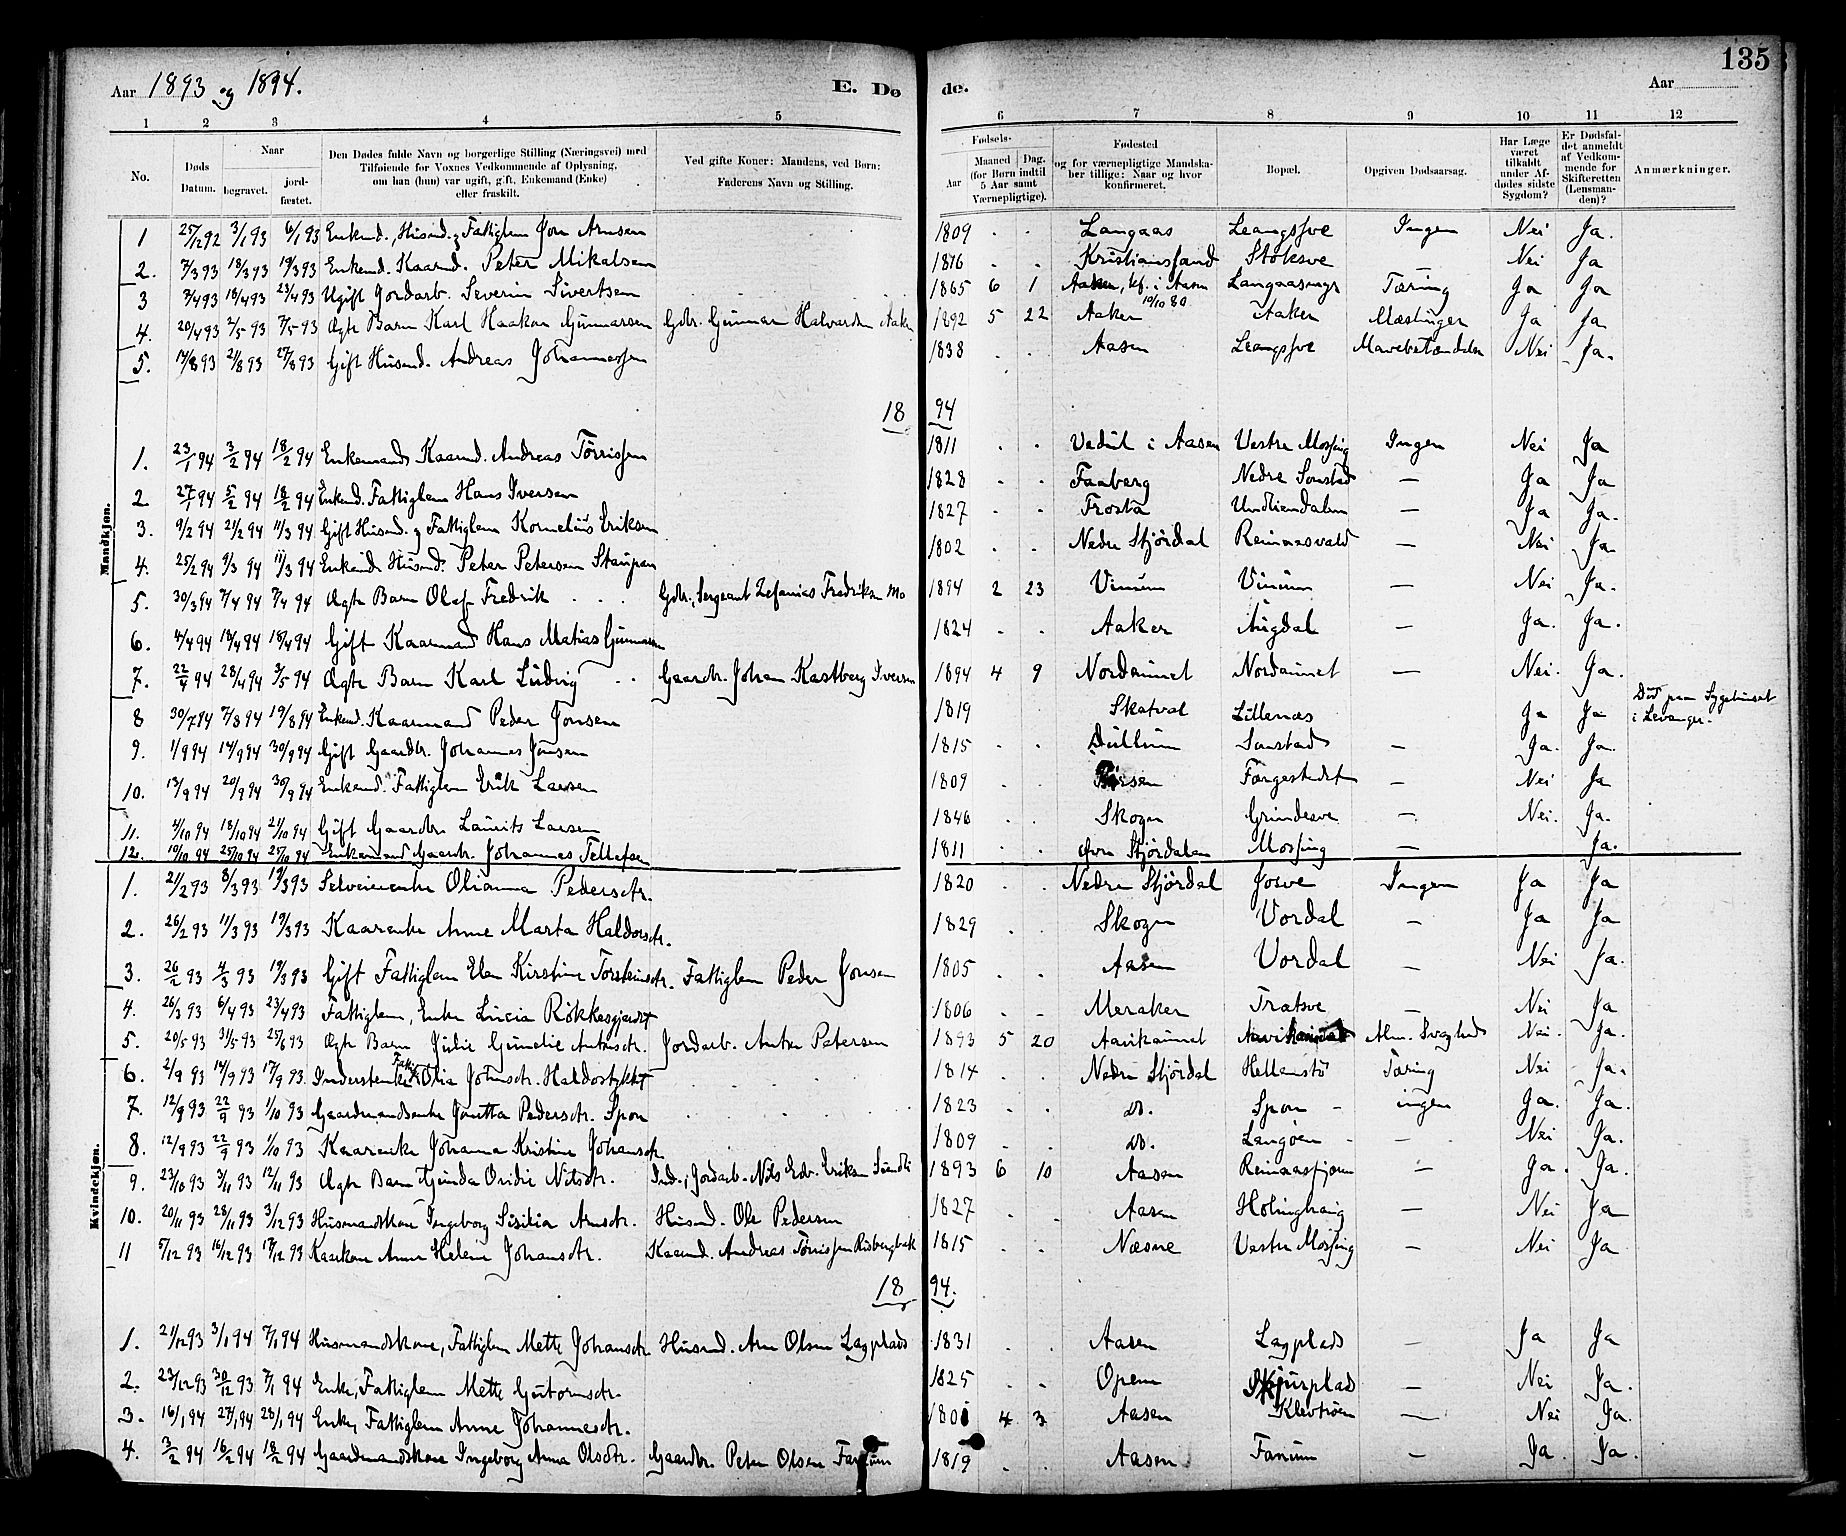 135
Aar 1893 og 1894.
E. Dø de.
Aar
1 2 3 4 5 6 7 8 9 10 11 12
No.
Døds Datum.
Naar
begravet.
jordfæstet.
Den Dødes fulde Navn og borgerlige Stilling (Næringsvei) med
Tilføiende for Voxnes Vedkommende af Oplysning,
om han (hun) var ugift, gift, Enkemand (Enke)
eller fraskilt.
Ved gifte Koner: Mandens, ved Børn:
Faderens Navn og Stilling.
Fødsels-
Aar
Maaned Dag.
(for Børn indtil
5 Aar samt
Værnepligtige).
Fødested
og for værnepligtige Mandska-
ber tillige: Naar og hvor
konfirmeret.
Bopæl.
Opgiven Dødsaarsag.
Har Læge
været
tilkaldt
under Af-
dødes sidste
Sygdom?
Er Dødsfal-
det anmeldt
af Vedkom-
mende for
Skifteretten
(Lensman-
den)?
Anmærkninger.
Mandkjøn.
1 25/12 92 3/1 93 6/1 93 Enkemd., Husmd. og Fattiglem Jon Arnsen 1809 Langaas Leangsfve Ingen Nei Ja.
2. 7/3 93 18/3 93 19/3 93 Enkemd. Kaarmd. Peter Mikalsen 1816 Kristianssand Stoksve Nei Ja
3 7/4 93 16/4 93 23/4 93 Ugift Jordarb. Severin Sivertsen 1865 6 1 kf. i Aasen 10/10 80 Tæring Ja Ja
4. 20/4 93 2/5 93 7/5 93 Ægte Barn Karl Haakon Gunnarsen Gdbr. Gunnar Halvardsen Aaker 1892 5 22 Aaker Aaker Mæslinger Ja Ja
5. 17/8 93 21/8 93 27/8 93 Gift Husmd. Andreas Johannessen 1838 Aasen Leangsfve Mavebetændelse Nei Ja.
18 94
1. 23/1 94 3/2 94 18/2 94 Enkemands Kaarmd. Andreas Tørrissen 1811 Vedul i Aasen Vestre Mossing Ingen Nei Ja
2 27/1 94 5/2 94 18/2 94 Enkemd. Fattiglem Hans Iversen 1828 Faaberg Nedre Sonstad — Ja Ja
3. 9/2 94 21/2 94 11/3 94 Gift Husmd. og Fattiglem Kornelius Eriksen 1827 Frosta Undliendalen — Ja Ja.
4. 25/2 94 9/3 94 11/3 94 Enkemd Husmd. Peter Petersen Staupan 1802 Nedre Stjørdal Reinaasvald — Nei Ja
5. 30/3 94 7/4 94 7/4 94 Ægte Barn Olaf Fredrik Gdbr., Sergeant Zefanias Fredriksen Mo 1894 2 23 Vinum Vinum — Nei Ja.
6. 4/4 94 18/4 94 18/4 94 Gift Kaarmand Hans Matias Gunnarsen 1824 Aaker Augdal — Ja. Ja.
7. 22/4 94 28/4 94 3/5 94 Ægte Barn Karl Ludvig Gaardbr. Johan Kastberg Iversen 1894 4 9 Nordaunet Nordaunet — Nei. Ja.
8 30/7 94 7/8 94 19/8 94 Enkemd. Kaarmand Peder Jonsen 1819 Skatval Lillenæs Ja Ja Død paa Sygehuset
i Levanger.
9. 1/9 94 14/9 94 30/9 94 Gift Gaardbr. Johannes Jonsen 1815 Dullum Sonstad — Ja. Ja.
10. 13/9 94 20/9 94 30/9 94 Enkemd. Fattiglem Erik Larsen 1809 Færgestedet — Nei Ja
11. 4/10 94 18/10 94 21/10 94 Gift Gaardbr. Laurits Larsen 1846 Skogn Grindesve — Nei. Ja.
12. 19/10 94 25/10 94 25/10 94 Enkemand Gaardbr. Johannes Tellefsen 1811 Øvre Stjørdalen Mossing — Ja.
Kvindekjøn.
1. 21/2 93 8/3 93 19/3 93 Selveierenke Olianna Pedersdtr. 1820 Nedre Stjørdal Josve Ingen Ja Ja
2. 26/2 93 11/3 93 19/3 93 Kaarenke Anne Marta Haldorsdtr. 1829 Skogn Vordal — Ja Ja
3. 26/2 93 4/3 93 19/3 93 Gift Fattiglem Elen Kirstine Torsteinsdtr. Fattiglem Peder Jonsen 1805 Aasen Vordal — Nei Ja.
4. 26/3 93 6/4 93 23/4 93 Fattiglem, Enke Lucia Røkkesgjerdet 1806 Meraker Tratsve — Nei Ja
5. 20/5 93 31/5 93 25/6 93 Ægte Barn Julie Gunelie Antonsdtr. Jordarb. Anton Petersen 1893 5 20 Aavikaunet Alm. Svaghed Nei. Ja.
6. 2/9 93 14/9 93 17/9 93 Inderstenke Olia Johnsdtr. Haldostykket 1814 Nedre Stjørdal Hellenstø Tæring Nei Ja.
7. 12/9 93 22/9 93 1/10 93 Gaardmandsenke Jonetta Pedersdtr. Spon 1823 do. Spon - ingen Ja. Ja.
8. 12/9 93 22/9 93 1/10 93 Kaarenke Johanna Kristine Johansdtr. 1809 do. Langøen - Nei Ja.
9. 23/10 93 3/11 93 12/11 93 Ægte Barn Gjinda Ovidie Nilsdtr. Ind., Jordarb. Nils Edv. Eriksen Sundli 1893 6 10 Aasen Reinaastjern — Ja. Ja.
10. 20/11 93 28/11 93 3/12 93 Husmandskone Ingeborg Sisilia Arnsdtr. Husmd. Ole Pedersen 1827 Aasen Holinghaug — Nei Ja
11 5/12 93 16/12 93 17/12 93 Kaarkone Anne Helene Johansdtr. Kaarmd. Andreas Tørrissen Risbergbak 1815 Næsne Vestre Mossing — Nei Ja
18 94.
1. 21/12 93 3/1 94 7/1 94 Husmandskone, Fattiglem Mette Johansdtr Husmd. Arn Olsen Lagplads 1831 Aasen Lagplads — Ja Ja
2. 23/12 93 30/12 93 7/1 94 Enke, Fattiglem Mette Guttormsdtr. 1825 Opem — Nei Ja.
3. 16/1 94 27/1 94 28/1 94 Enke, Fattiglem Anne Johannesdtr. 4 3 Aasen Klevtrøen — Nei Ja.
4. 3/2 94 16/2 94 18/2 94 Gaardmandskone Ingeborg Anna Olsdtr. Gaardbr. Peter Olsen Fanum 1819 Aasen Fanum — Ja. Ja.